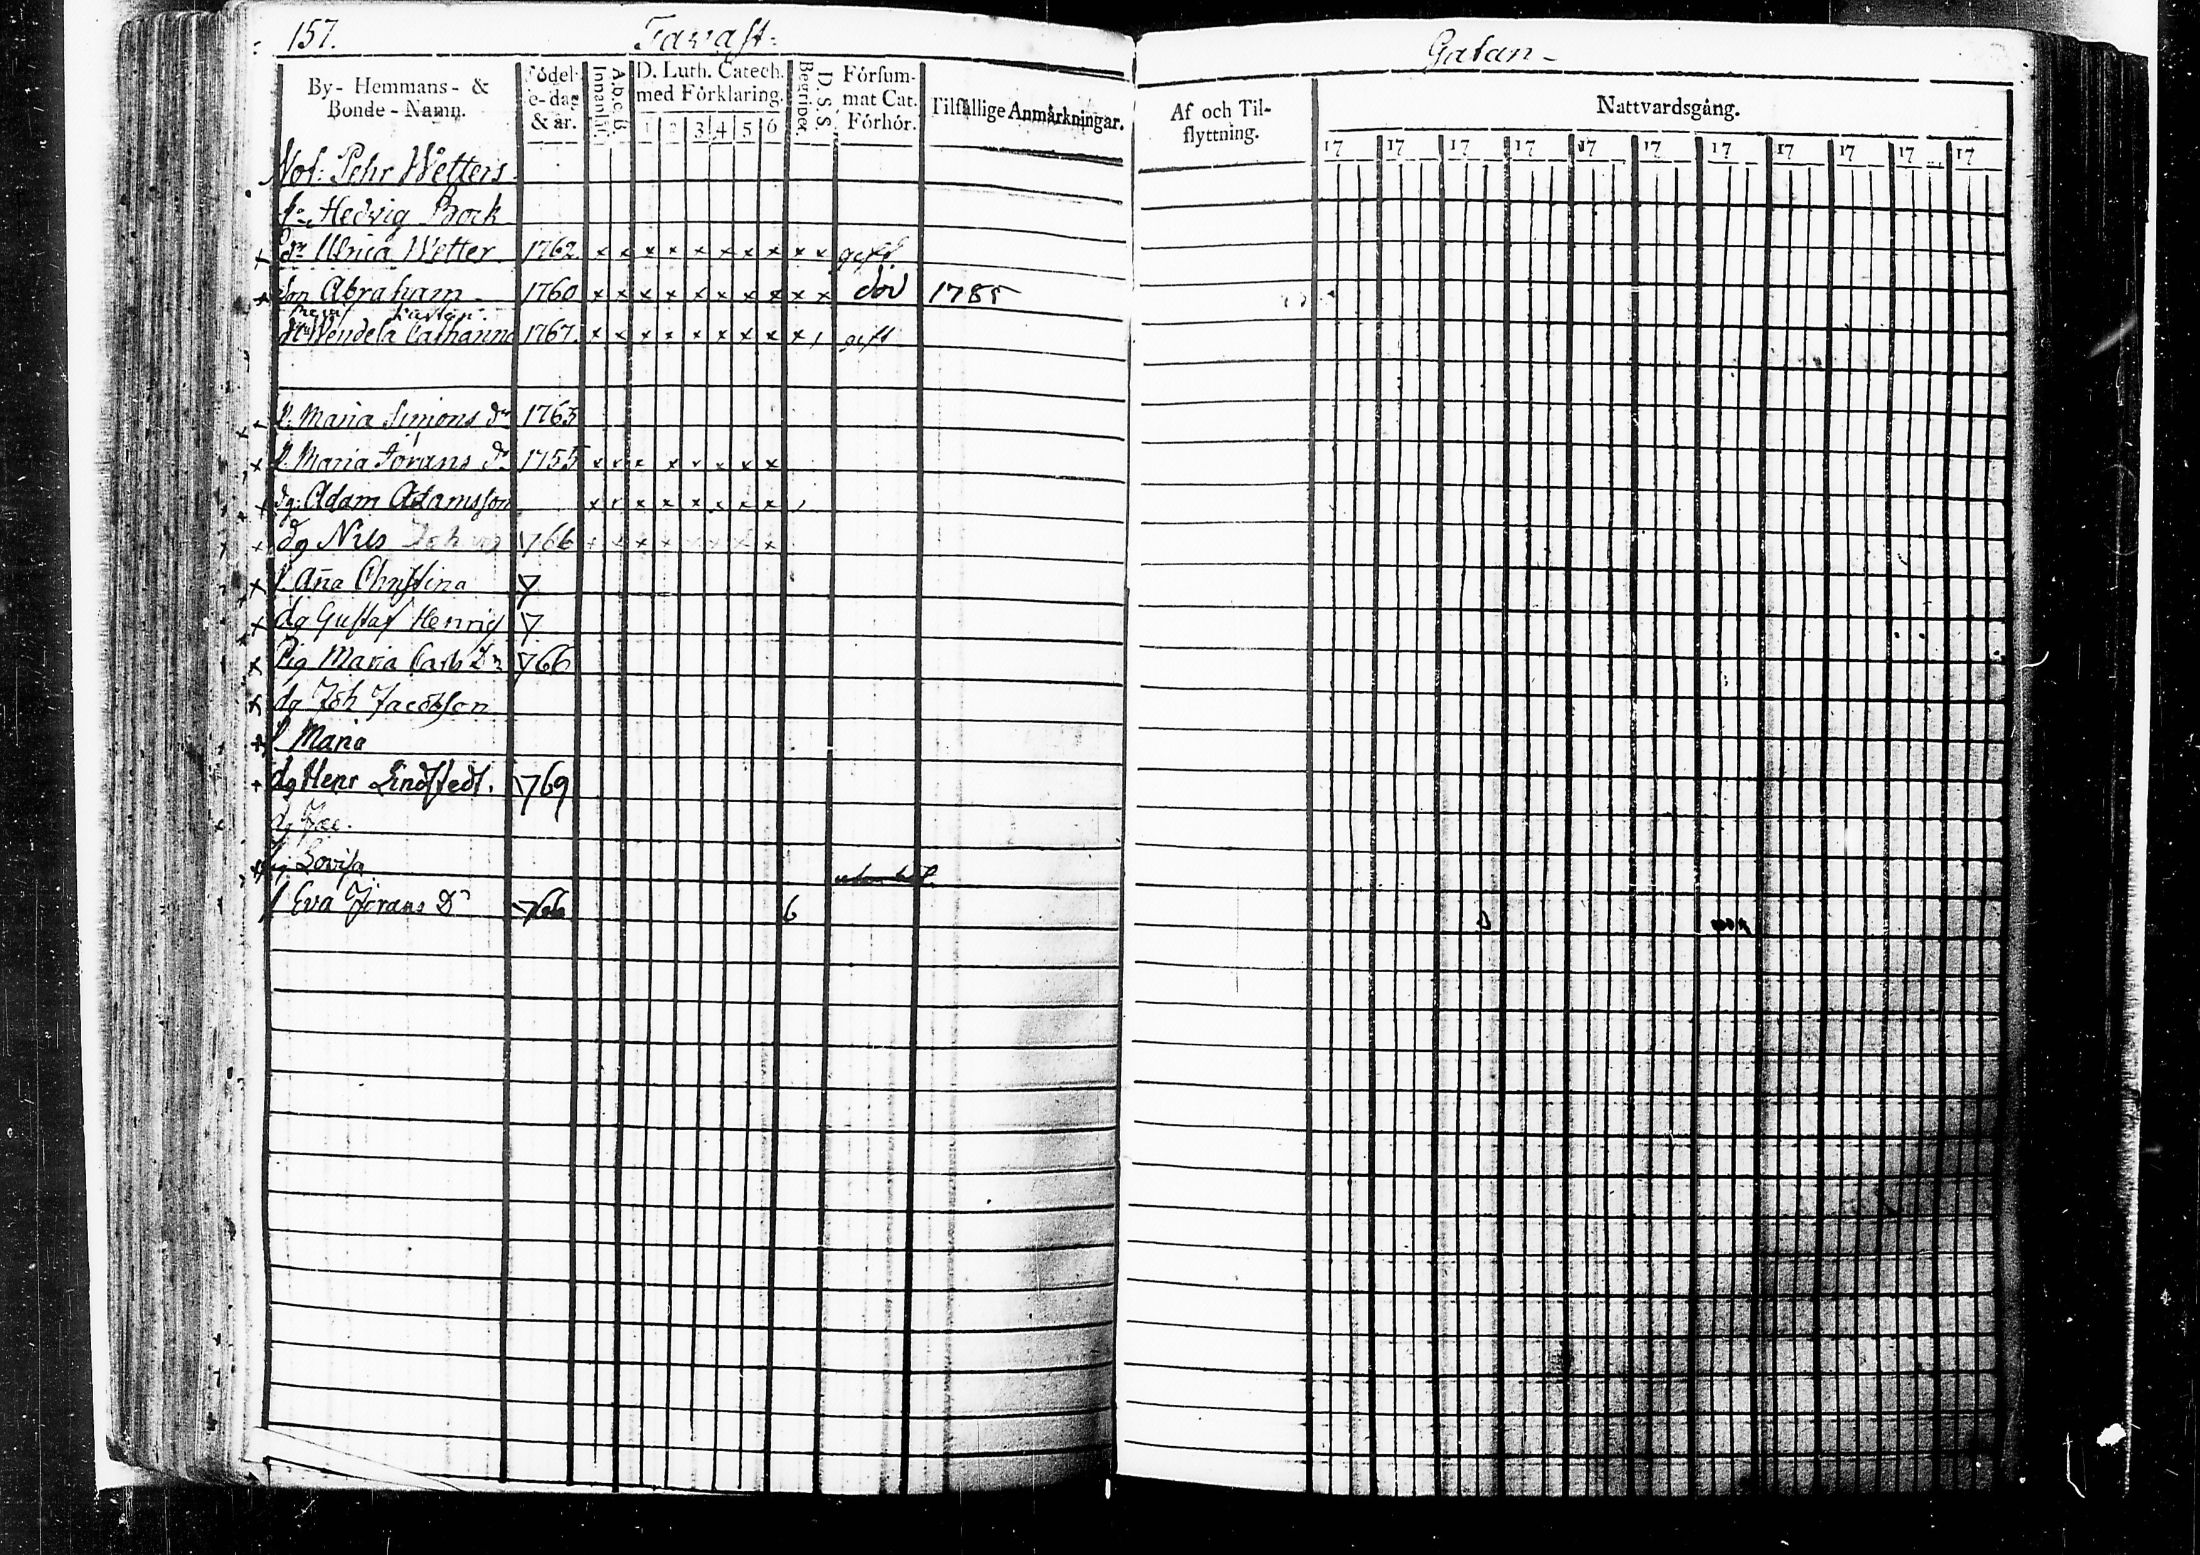 157. Tavast-
Gatan-
By- Hemmans- &
Bonde-Namn.
Födel-
se-dag
& år.
Innanläs.
A.b.c.B.
D. Luth. Catech.
med Förklaring.
1 2 3 4 5 6
Begriper.
D. S. S.
Försum-
mat Cat.
Förhör.
Tilfällige Anmärkningar.
Af och Til-
flyttning.
Nattvardsgång.
17 17 17 17 17 17 17 17 17 17 17
Not: Pehr Wetters
Hedvig Bock
x dr Ulrica Wetter 1762 x x x x x x x x x x gift
x son Abraham 1760 x x x x x x x x x x död 1785
dr Wendela Catharina 1767. x x x x x x x x x gift
P. Maria Simons dr 1763
x P. Maria Jörans dr 1755 x x x x x x x x
x dg. Adam Adamsson x x x x x x x x
x dg Nils 1766 x x x x x x x x
x P. Aña Christina 7
x dg Gustaf Henrics 7
x Pig Maria Carls Dr 766
x dg Joh Jacobsson
x P Maria
dg Henr Lindstedt. 769
dg
Lovisa
P Eva Jörans Dr 766 6